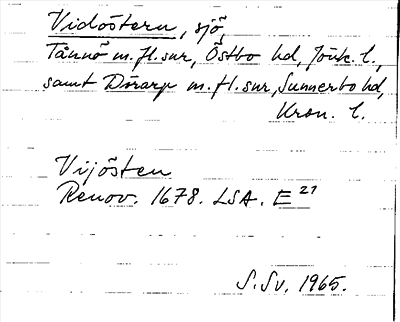 Vidöstern, sjö,
Tånnö m.fl. snr, Östbo hd, Jönk. l.,
samt Dörarp m.fl. snr, Sunnerbo hd,
Kron. l.
Vijösten
Renov. 1678. LSA. E 21
S.Sv. 1965.